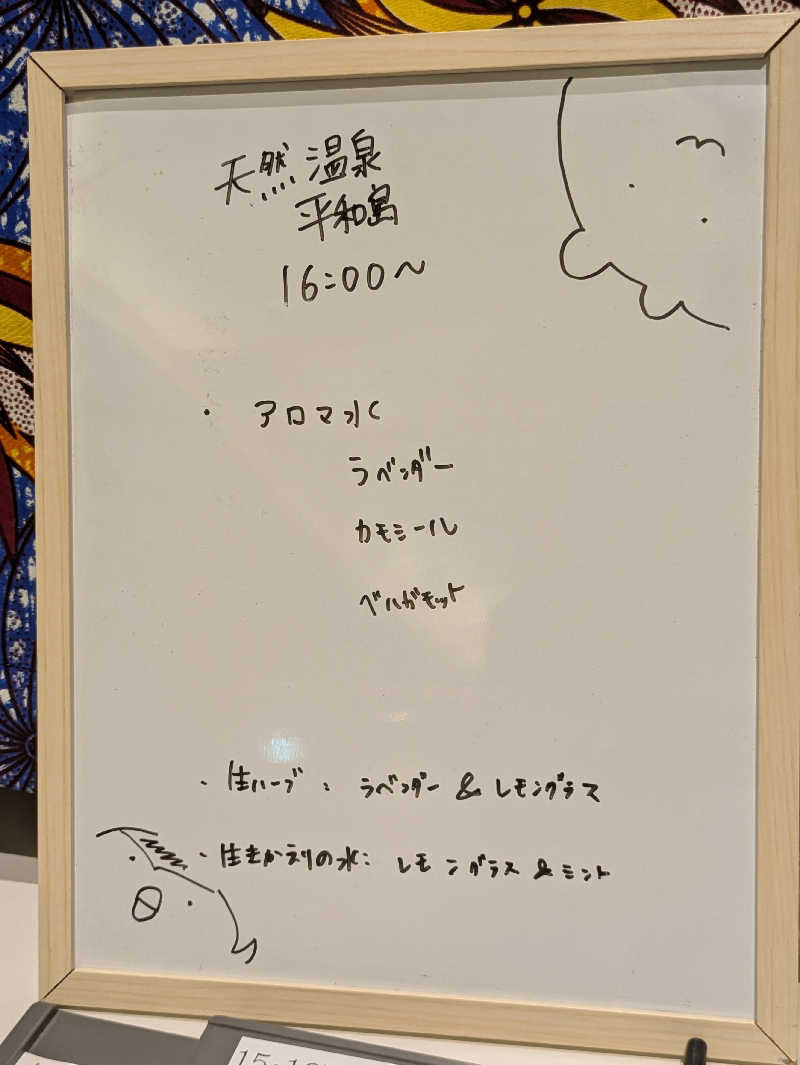 天然温泉
平和島
16:00〜
・ アロマ水
ラベンダー
カモミール
ベルガモット
・生ハーブ : ラベンダー & レモングラス
・生きかえりの水: レモングラス & ミント